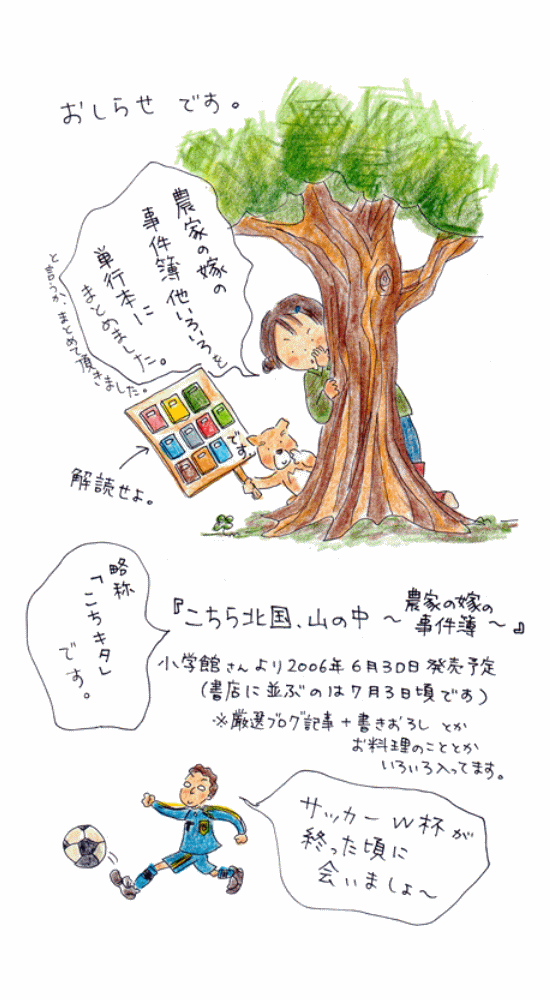 おしらせ です。
農家の嫁の
事件簿他いろいろを
単行本に
まとめました。
と言うか、まとめて頂きました。
です。
解読せよ。
略称
「こちキタ」
です。
『こちら北国、山の中 〜 農家の嫁の
事件簿 〜 』
小学館さんより2006年6月30日発売予定
(書店に並ぶのは7月3日頃です)
※厳選ブログ記事+書きおろし とか
お料理のこととか
いろいろ入ってます。
サッカーW杯が
終った頃に
会いましょ〜